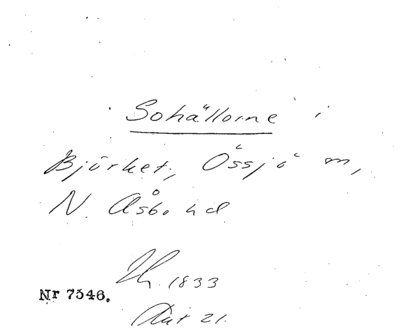 Sohällorne i
Björket, Össjö m,
N. Åsbo hd
1833
Nr 7546.
21.